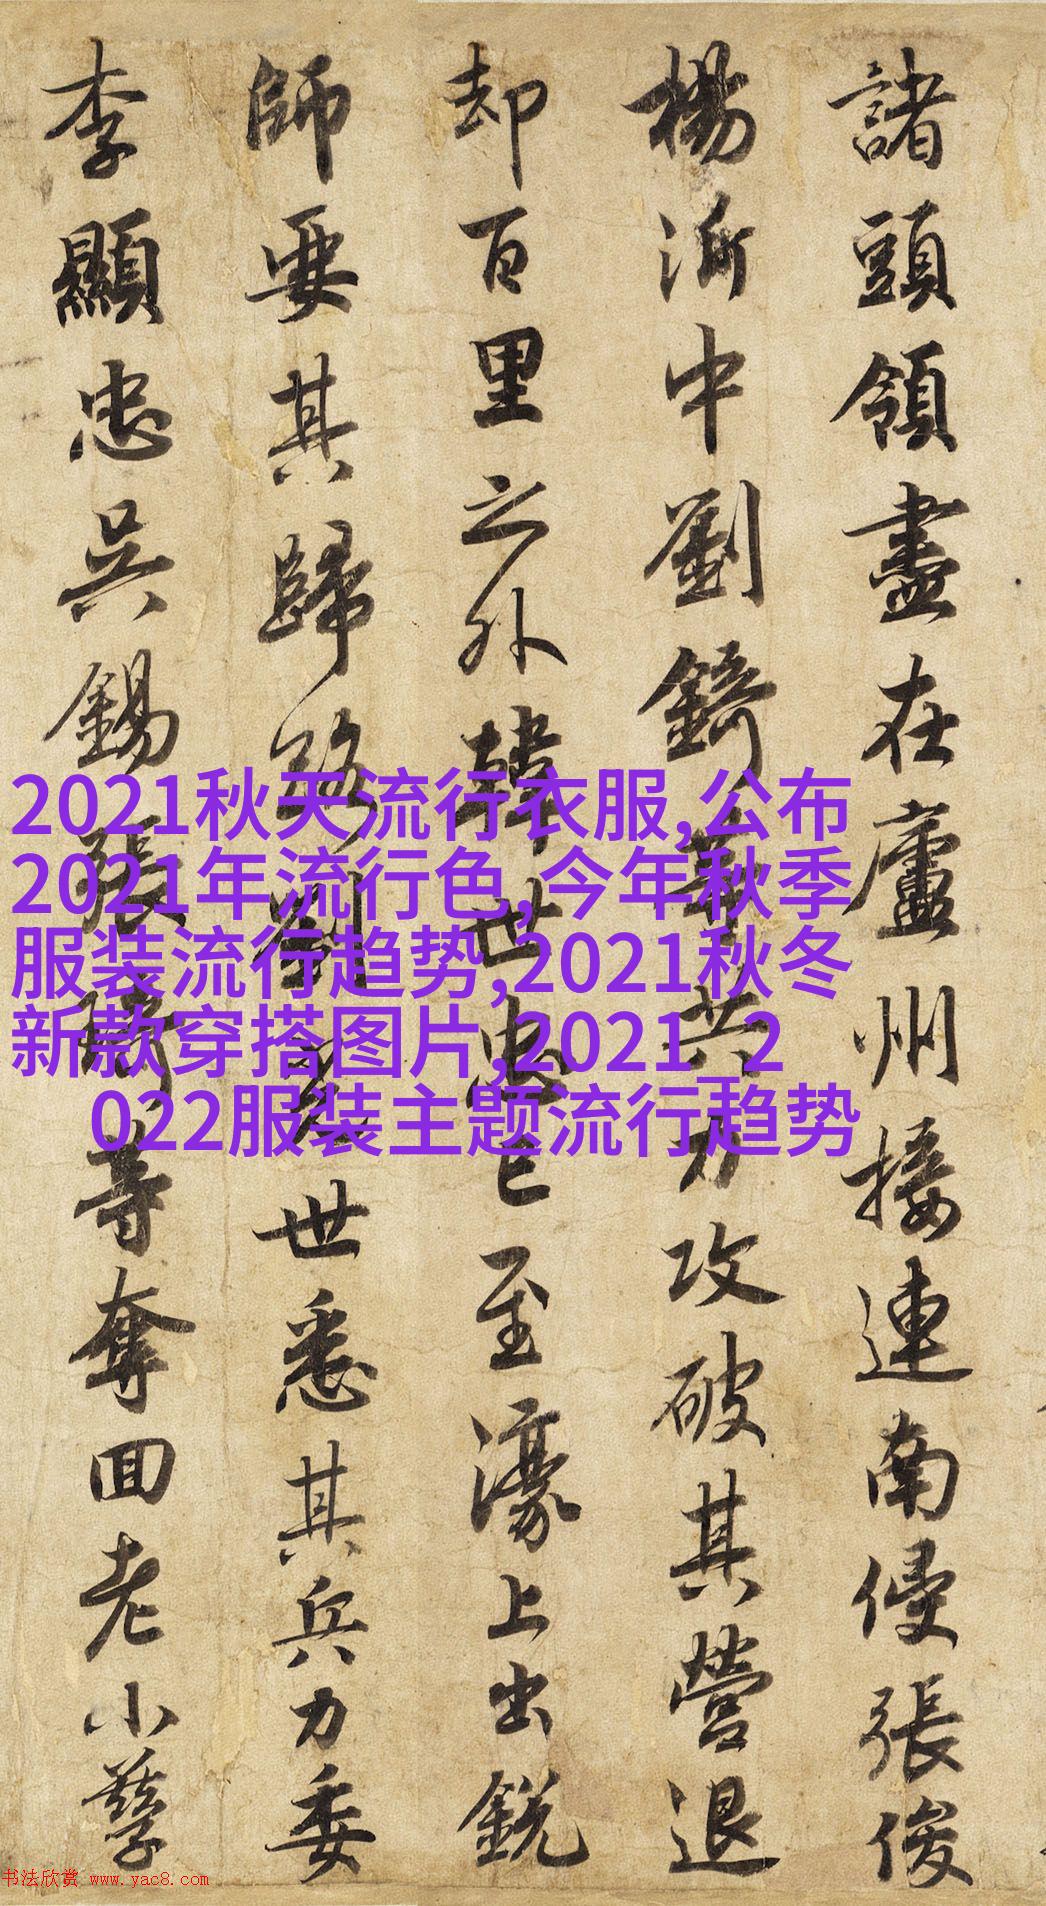 諸頭領盡在廬州接連南侵張俊
楊沂中劉錡等共力攻破其營退
却百里之外韓世忠已至濠上出銳
師要其歸路劉光世悉其兵力委
李顯忠吳錫張琦等奪回老小孳
2021秋天流行衣服,公布
2021年流行色,今年秋季
服装流行趋势,2021秋冬
新款穿搭图片,2021_2
022服装主题流行趋势
书法欣赏 www.yac8.com